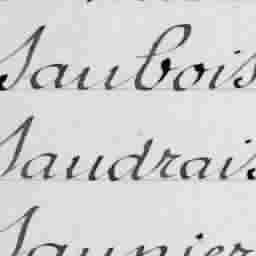 Saubois
Saudrais
Saunier